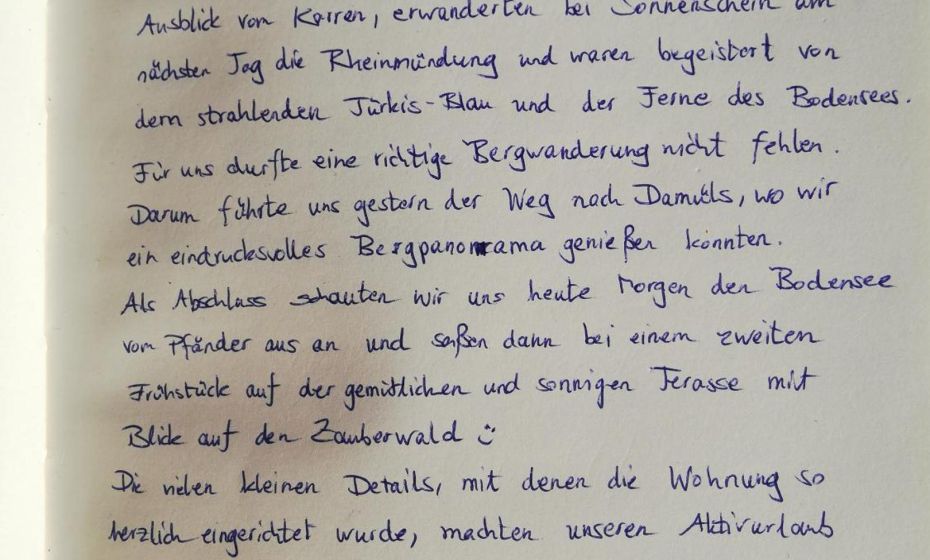 Ausblick vom Karren, erwanderten bei Sonnenschein am
nächsten Tag die Rheinmündung und waren begeistert von
dem strahlenden Türkis-Blau und der Ferne des Bodensees.
Für uns durfte eine richtige Bergwanderung nicht fehlen.
Darum führte uns gestern der Weg nach Damüls, wo wir
ein eindrucksvolles Bergpanorama genießen konnten.
Als Abschluss schauten wir uns heute Morgen den Bodensee
vom Pfänder aus an und saßen dann bei einem zweiten
Frühstück auf der gemütlichen und sonnigen Terasse mit
Blick auf den Zauberwald :)
Die vielen kleinen Details, mit denen die Wohnung so
herzlich eingerichtet wurde, machten unseren Aktivurlaub